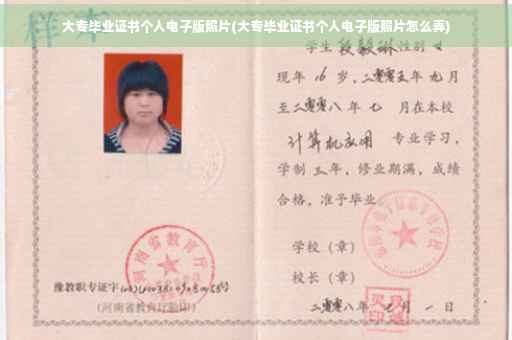 大专毕业证书个人电子版照片(大专毕业证书个人电子版照片怎么弄)
样本
学生段毅琳性别女
现年16岁,二零零五年九月
至二零零八年七月在本校
计算机应用 专业学习,
学制三年,修业期满,成绩
合格,准予毕业
学校(章)
校长(章)
二零零八年七月一日
河南省教育厅
豫教职专证字
(河南省教育厅验印)